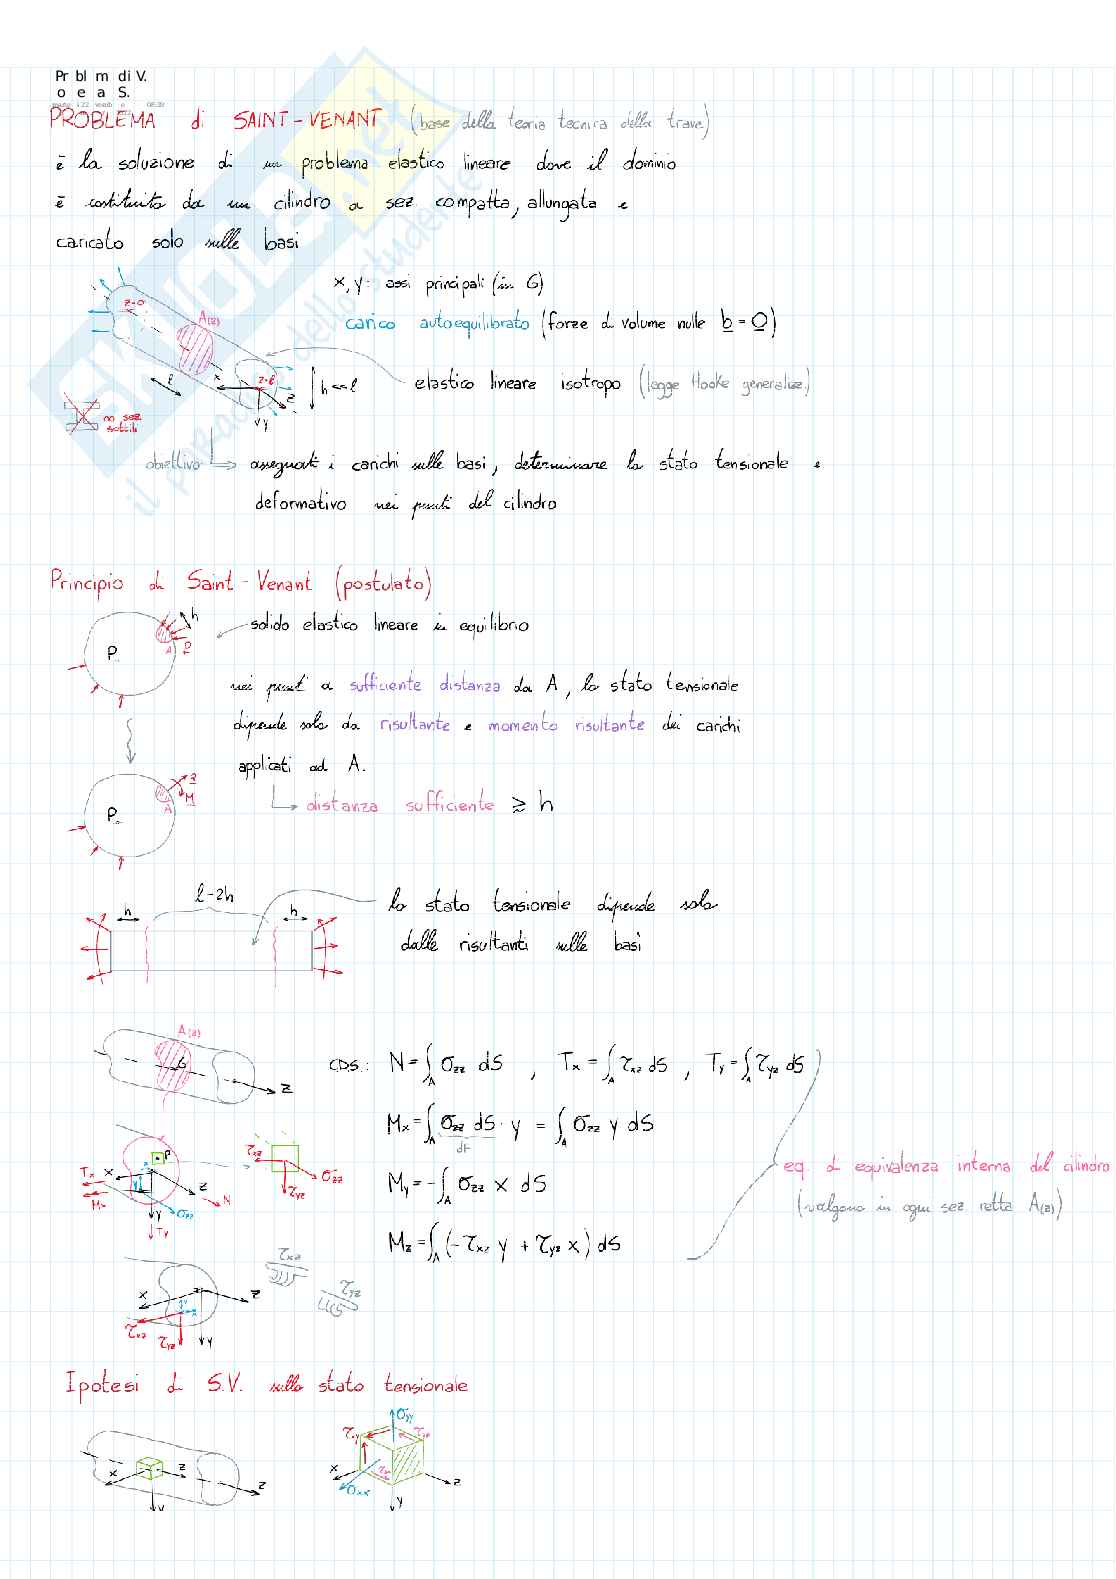 Pr bl m di V.
o e a S.
PROBLEMA di SAINT-VENANT (base della teoria tecnica della trave)
è la soluzione di un problema elastico lineare dove il dominio
è costituito da un cilindro a sez compatta, allungata e
caricato solo sulle basi
x, y: assi principali (in G)
carico autoequilibrato (forze di volume nulle b = 0)
z=0
A(z)
l
x
z=l
z
y
h << l
elastico lineare isotropo (legge Hooke generalizz.)
no sez
sottili
obiettivo → assegnati i carichi sulle basi, determinare lo stato tensionale e
deformativo nei punti del cilindro
Principio di Saint-Venant (postulato)
h
P
A
p
solido elastico lineare in equilibrio
nei punti a sufficiente distanza da A, lo stato tensionale
dipende solo da risultante e momento risultante dei carichi
applicati ad A.
R
M
A
P
distanza sufficiente ≳ h
l-2h
h
h
lo stato tensionale dipende solo
dalle risultanti sulle basi
A(z)
G
z
CDS: N = ∫_A σzz dS , Tx = ∫_A τxz dS , Ty = ∫_A τyz dS
Mx = ∫_A σzz dS · y = ∫_A σzz y dS
dF
My = -∫_A σzz x dS
Mz = ∫_A (-τxz y + τyz x) dS
eq. di equivalenza interna del cilindro
(valgono in ogni sez. retta A(z))
P
Tx
x
y
z
N
σzz
y
Ty
τxz
σzz
τyz
τxz
τyz
x
z
τxz
τyz
y
Ipotesi di S.V. sullo stato tensionale
x
z
z
y
σyy
τxy
x
σxx
z
y